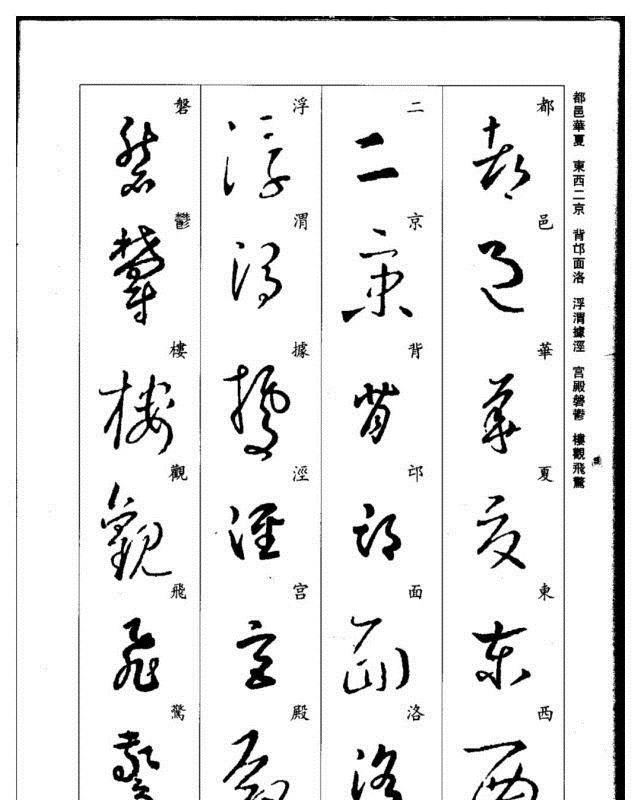 都邑華夏 東西二京 背邙面洛 浮渭據涇 宮殿磐鬱 樓觀飛驚
都邑華夏東西
二京背邙面洛
浮渭據涇宮殿
磐鬱樓觀飛驚